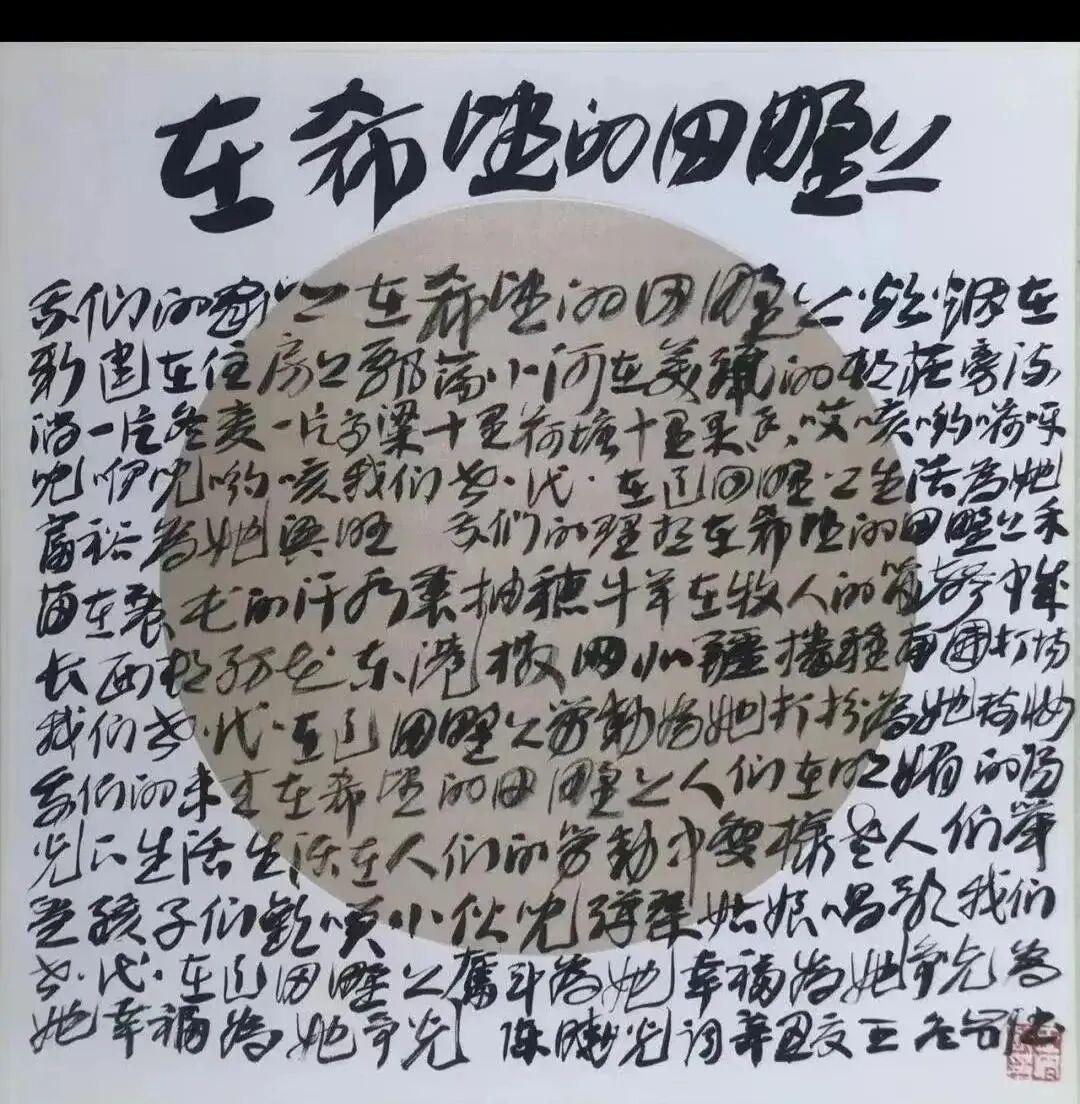 在希望的田野上
我们的家乡在希望的田野上炊烟在
新建在住房上飘荡小河在美丽的村庄旁流
淌一片冬麦一片高粱十里荷塘十里果香哎咳哟嗬呀
儿咿儿哟咳我们世代在这田野上生活為她
富裕為她興旺 我们的理想在希望的田野上禾
苗在農民的汗水里抽穗牛羊在牧人的笛声中成
长西村纺花东港撒网北疆播种南国打场
我们世代在这田野上劳動為她打扮為她梳妆
我们的未来在希望的田野上人们在明媚的阳
光下生活生活在人们的劳動中变樣老人们举
杯孩子们歡笑小伙儿弹琴姑娘唱歌我们
世代在这田野上奮斗為她幸福為她争光為
她幸福為她争光 陈晓光词 王